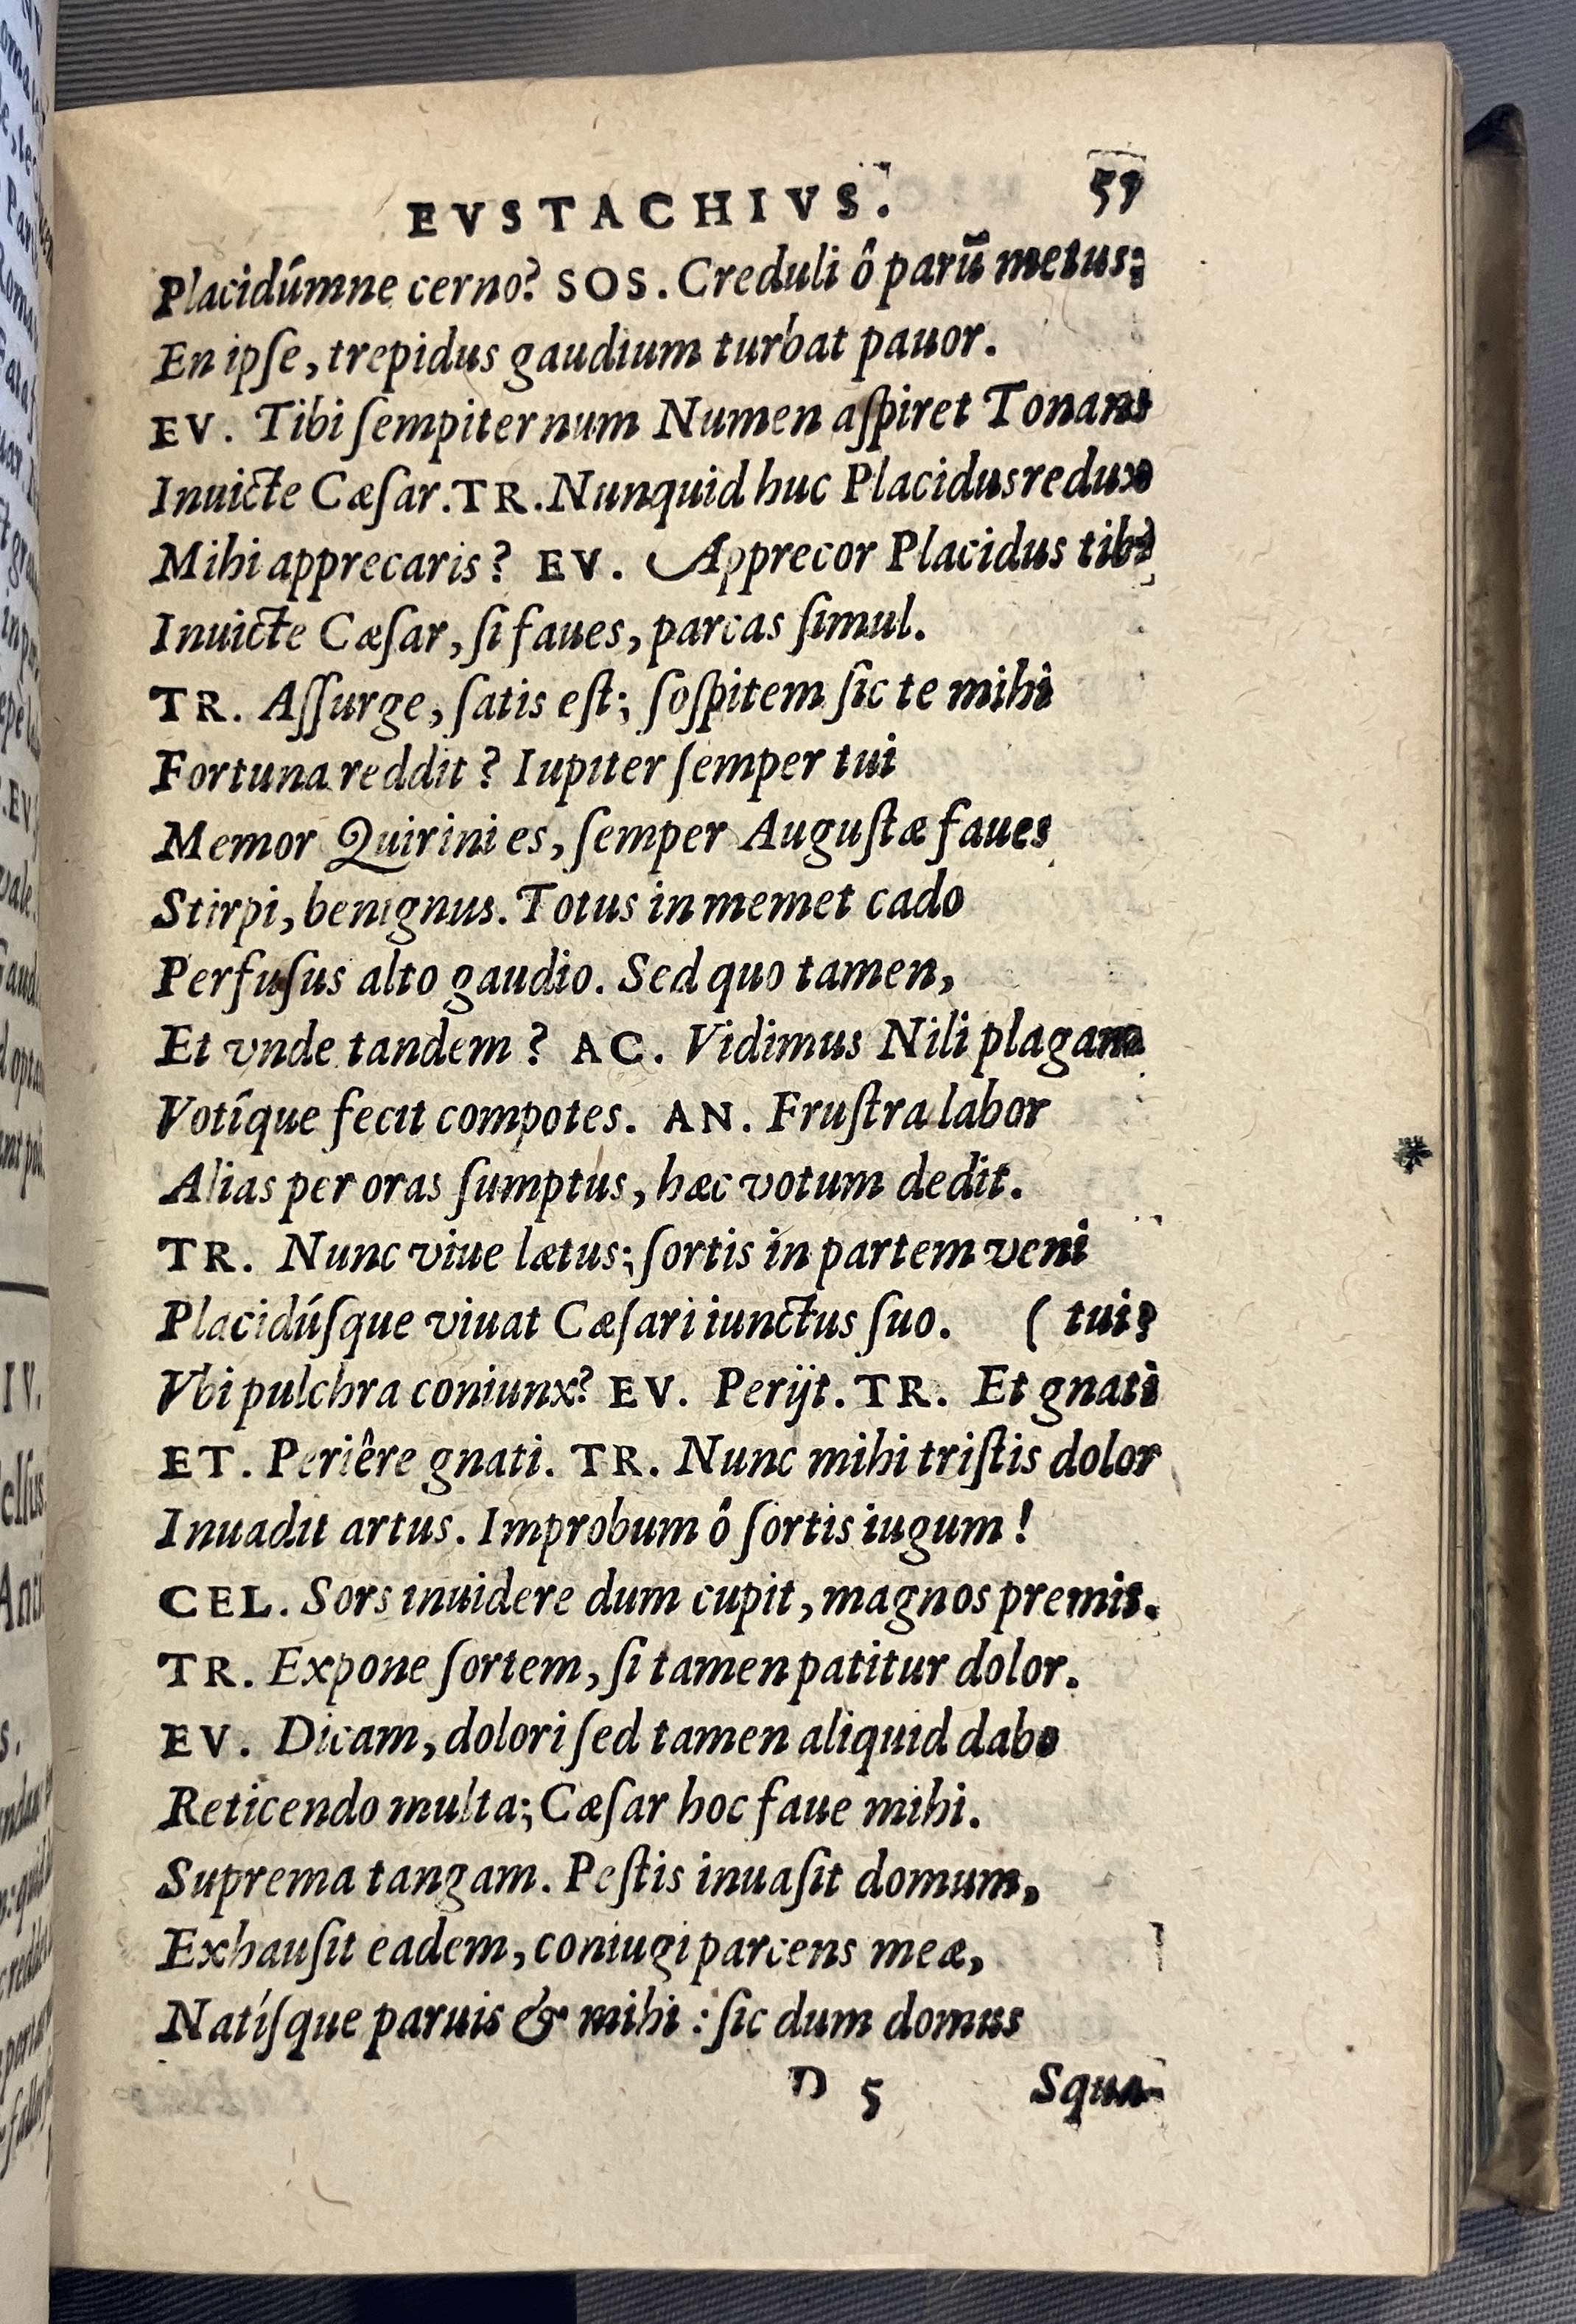 EVSTACHIVS. 57
Placidúmne cerno? SOS. Creduli ô parū metus;
En ipſe, trepidus gaudium turbat pauor.
EV. Tibi ſempiternum Numen aſpiret Tonans
Inuicte Cæſar. TR. Nunquid huc Placidus redux
Mihi apprecaris? EV. Apprecor Placidus tibi
Inuicte Cæſar, ſi faues, parcas ſimul.
TR. Aſſurge, ſatis eſt; ſoſpitem ſic te mihi
Fortuna reddit? Iupiter ſemper tui
Memor Quirini es, ſemper Auguſtæ faues
Stirpi, benignus. Totus in memet cado
Perfuſus alto gaudio. Sed quo tamen,
Et vnde tandem? AC. Vidimus Nili plagam
Votîque fecit compotes. AN. Fruſtra labor
Alias per oras ſumptus, hæc votum dedit.
TR. Nunc viue lætus; ſortis in partem veni
Placidúſque viuat Cæſari iunctus ſuo. ( tui?
Vbi pulchra coniunx? EV. Perijt. TR. Et gnati
ET. Periêre gnati. TR. Nunc mihi triſtis dolor
Inuadit artus. Improbum ô ſortis iugum!
CEL. Sors inuidere dum cupit, magnos premit.
TR. Expone ſortem, ſi tamen patitur dolor.
EV. Dicam, dolori ſed tamen aliquid dabo
Reticendo multa; Cæſar hoc faue mihi.
Suprema tangam. Peſtis inuaſit domum,
Exhauſit eadem, coniugi parcens meæ,
Natíſque paruis & mihi : ſic dum domus
D 5 Squa-